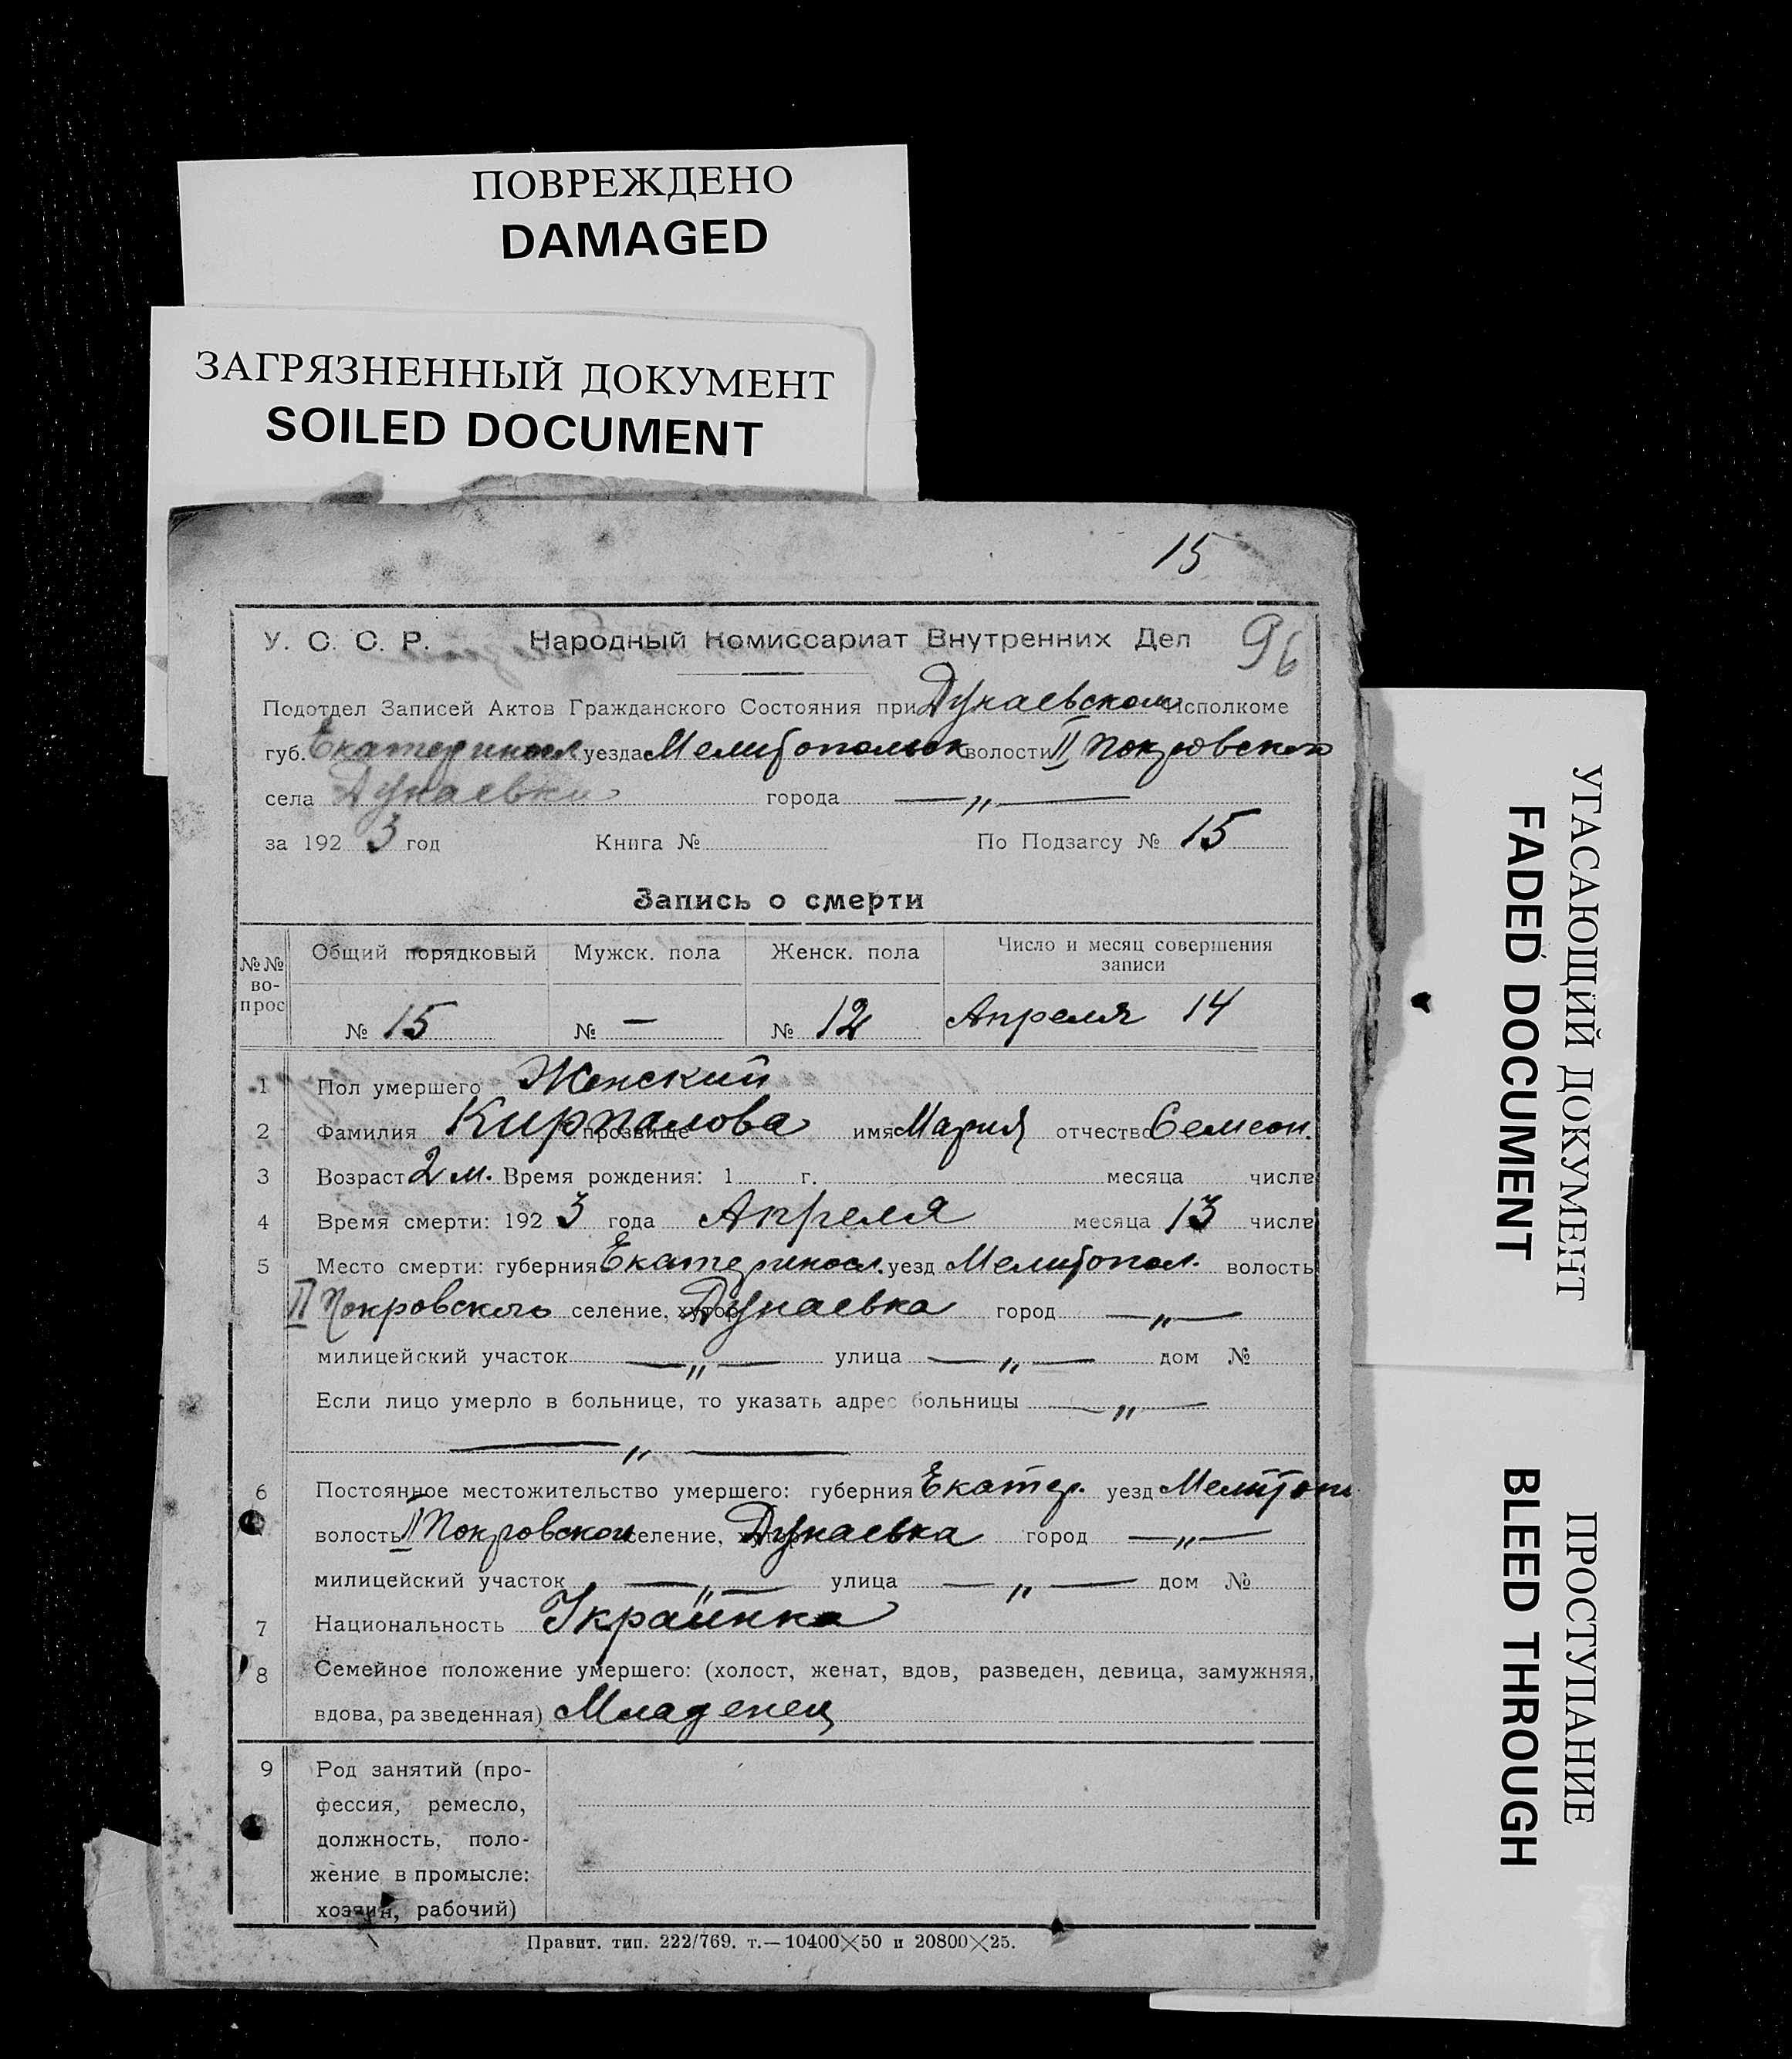 ПОВРЕЖДЕНО
DAMAGED
ЗАГРЯЗНЕННЫЙ ДОКУМЕНТ
SOILED DOCUMENT
15
У. С. С. Р. Народный Комиссариат Внутренних Дел 96
Подотдел Записей Актов Гражданского Состояния при Дунаевском Исполкоме
губ. Екатеринosл. уезда Мелитопольск волости II Покровской
села Дунаевки города — „ —
за 1923 год Книга № По Подзагсу № 15
Запись о смерти
№№ вопрос Общий порядковый Мужск. пола Женск. пола Число и месяц совершения записи
№ 15 № — № 12 Апреля 14
1 Пол умершего Женский
2 Фамилия прозвище Кирпалова имя Мария отчество Семеон.
3 Возраст 2 м. Время рождения: 1 г. месяца числа
4 Время смерти: 1923 года Апреля месяца 13 числа
5 Место смерти: губерния Екатериносл. уезд Мелитопол. волость
II Покровского селение, хутор Дунаевка город — „ —
милицейский участок — „ — улица — „ — дом №
Если лицо умерло в больнице, то указать адрес больницы — „ —
— „ —
6 Постоянное местожительство умершего: губерния Екатер. уезд Мелитоп
волость II Покровской селение, хутор Дунаевка город — „ —
милицейский участок — „ — улица — „ — дом №
7 Национальность Украинка
8 Семейное положение умершего: (холост, женат, вдов, разведен, девица, замужняя,
вдова, разведенная) Младенец
9 Род занятий (про-
фессия, ремесло,
должность, поло-
жение в промысле:
хозяин, рабочий)
Правит. тип. 222/769. т.—10400×50 и 20800×25.
УГАСАЮЩИЙ ДОКУМЕНТ
FADED DOCUMENT
ПРОСТУПАНИЕ
BLEED THROUGH